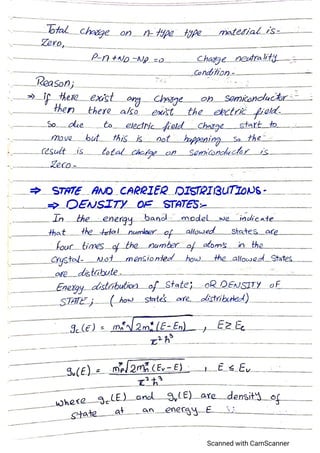 Total charge on n-type type material is-
Zero,
P-n+ND-NA=0 charge neutrality
Condition-
Reason;
⇒ if there exist any charge on semiconductor
then there also exist the electric field.
So due to electric field charge start to
move but this is not happening so the
result is total charge on semiconductor is
Zero-
⇒ STATE AND CARRIER DISTRIBUTIONS-
⇒ DENSITY OF STATES:-
In the energy band model we indicate
that the total number of allowed states are
four times of the number of atoms in the
crystal. Not mensionted how the allowed states
are distribute.
Energy distribution of State; OR DENSITY OF
STATE; ( how state's are distributed)
gc(E) = mn*√2mn*(E-En) , E≥Ec
π²ħ³
gv(E) = mp*√2mp*(Ev-E) , E≤Ev
π²ħ³
where gc(E) and gv(E) are density of
state at an energy E
Scanned with CamScanner